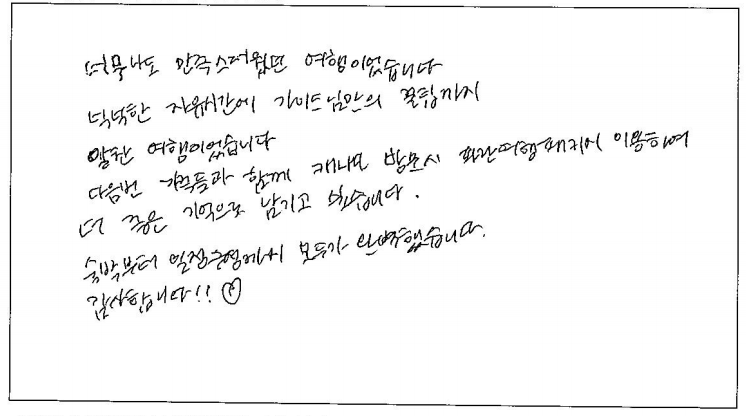 너무나도 만족스러웠던 여행이었습니다
넉넉한 자유시간에 가이드님만의 꿀팁까지
알찬 여행이었습니다
다음번 가족들과 함께 캐나다 방문시 파란여행패키지 이용하여
더 좋은 기억으로 남기고 싶습니다.
숙박부터 일정구성까지 모두가 완벽했습니다.
감사합니다!!